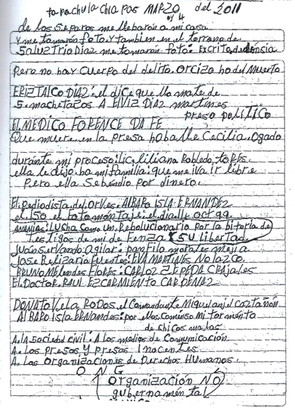 tapachula chiapas MARZO del 2011
de los separos me llebaron a mi casa
y me tomaron foto y tambien en el terreno de
Saluztrio Diaz me tomaron foto: Escrito denuncia
Pero no hay cuerpo del delito. Orcizo ho del Muerto
ERIZTALCO DIAZ: el dice que lo mate de
5 machetazos A ELVIZ DIAZ martines
preso político
EL MEDICO FORENCE DA FE
Que muere en la presa ho balle Cecilia. Ogado
durante mi proceso: Lic. liliana Robledo
ella le dijo ba mi familia: que me iva ir libre
Pero ella Sebendio por dinero:
El Periodista del Orbe: ALBARO ISLA ERNANDEZ
el oct 99
Lucha como un Revolucionario por la bitoria de
testigos de mi de fenza y SU libertad
Juan servando Aguilar: panfilo matates mejia
Jose Belizario fuertes: EVA MARTINES NOLAZCO
BRUNO Melendes flores: CARLOZ ZEPEDA GRAJALES
EL DOCTOR RAUL EZCAMIENTO CARDENAZ
DONATO el Comandante Miguel anjel Castañon
ALBARO isla ERNANDES: por mi tormento
de chicomuselo
A. la Sociedad civil: A los medios de Comunicación
A. Los presos y Presos inocentes
A. Las organizaciones de Derechos Humanos
O N G
organización NO
gubernamental